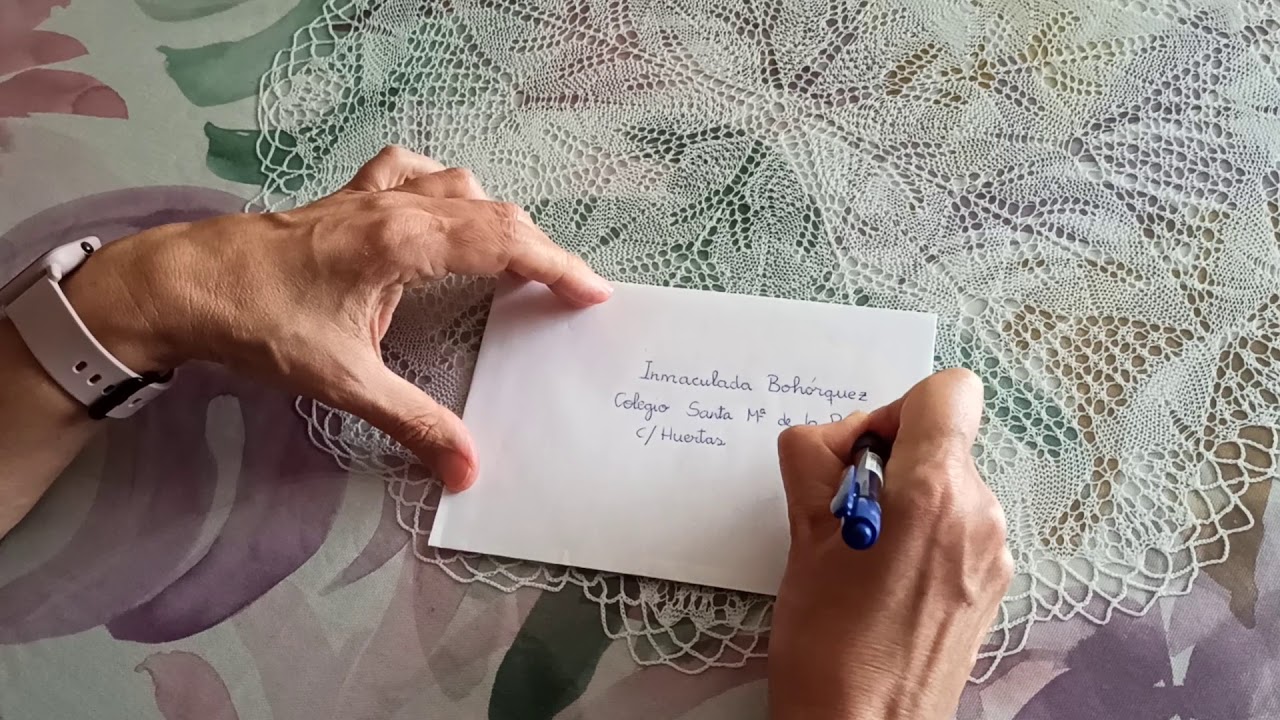 Inmaculada Bohórquez
Colegio Santa Mª de la
C/ Huertas